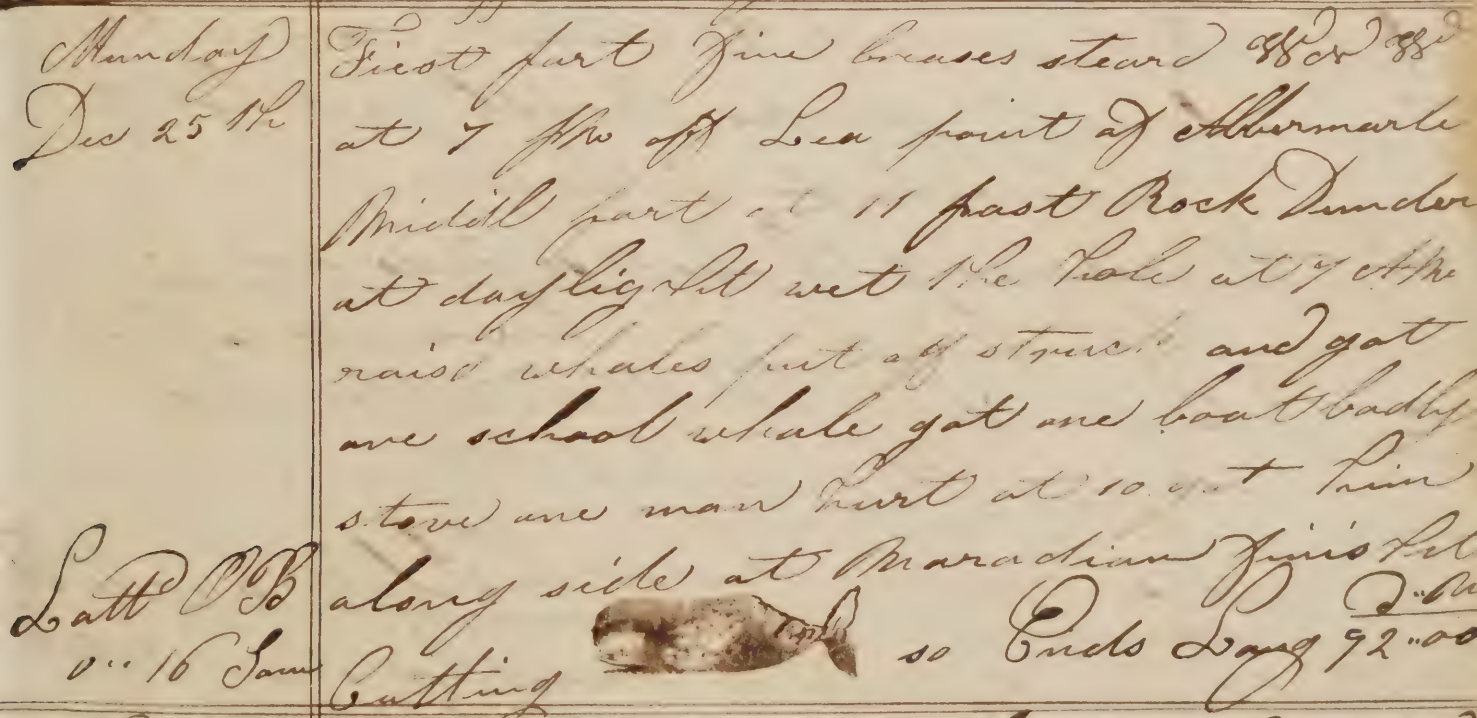 Munday
Dec 25 th
Latt^d OB
0" 16 Sou
First part fine breases steard W or W
at 7 Pm off Lea point of Albermarle
Middl part at 11 past Rock Dunder
at daylight wet the hole at 7 AM
raisd whales put off struck and got
one school whale got one boat badly
stove one man hurt at 10 got him
along side at Maradian finisht
Cutting so Ends Long 92"00